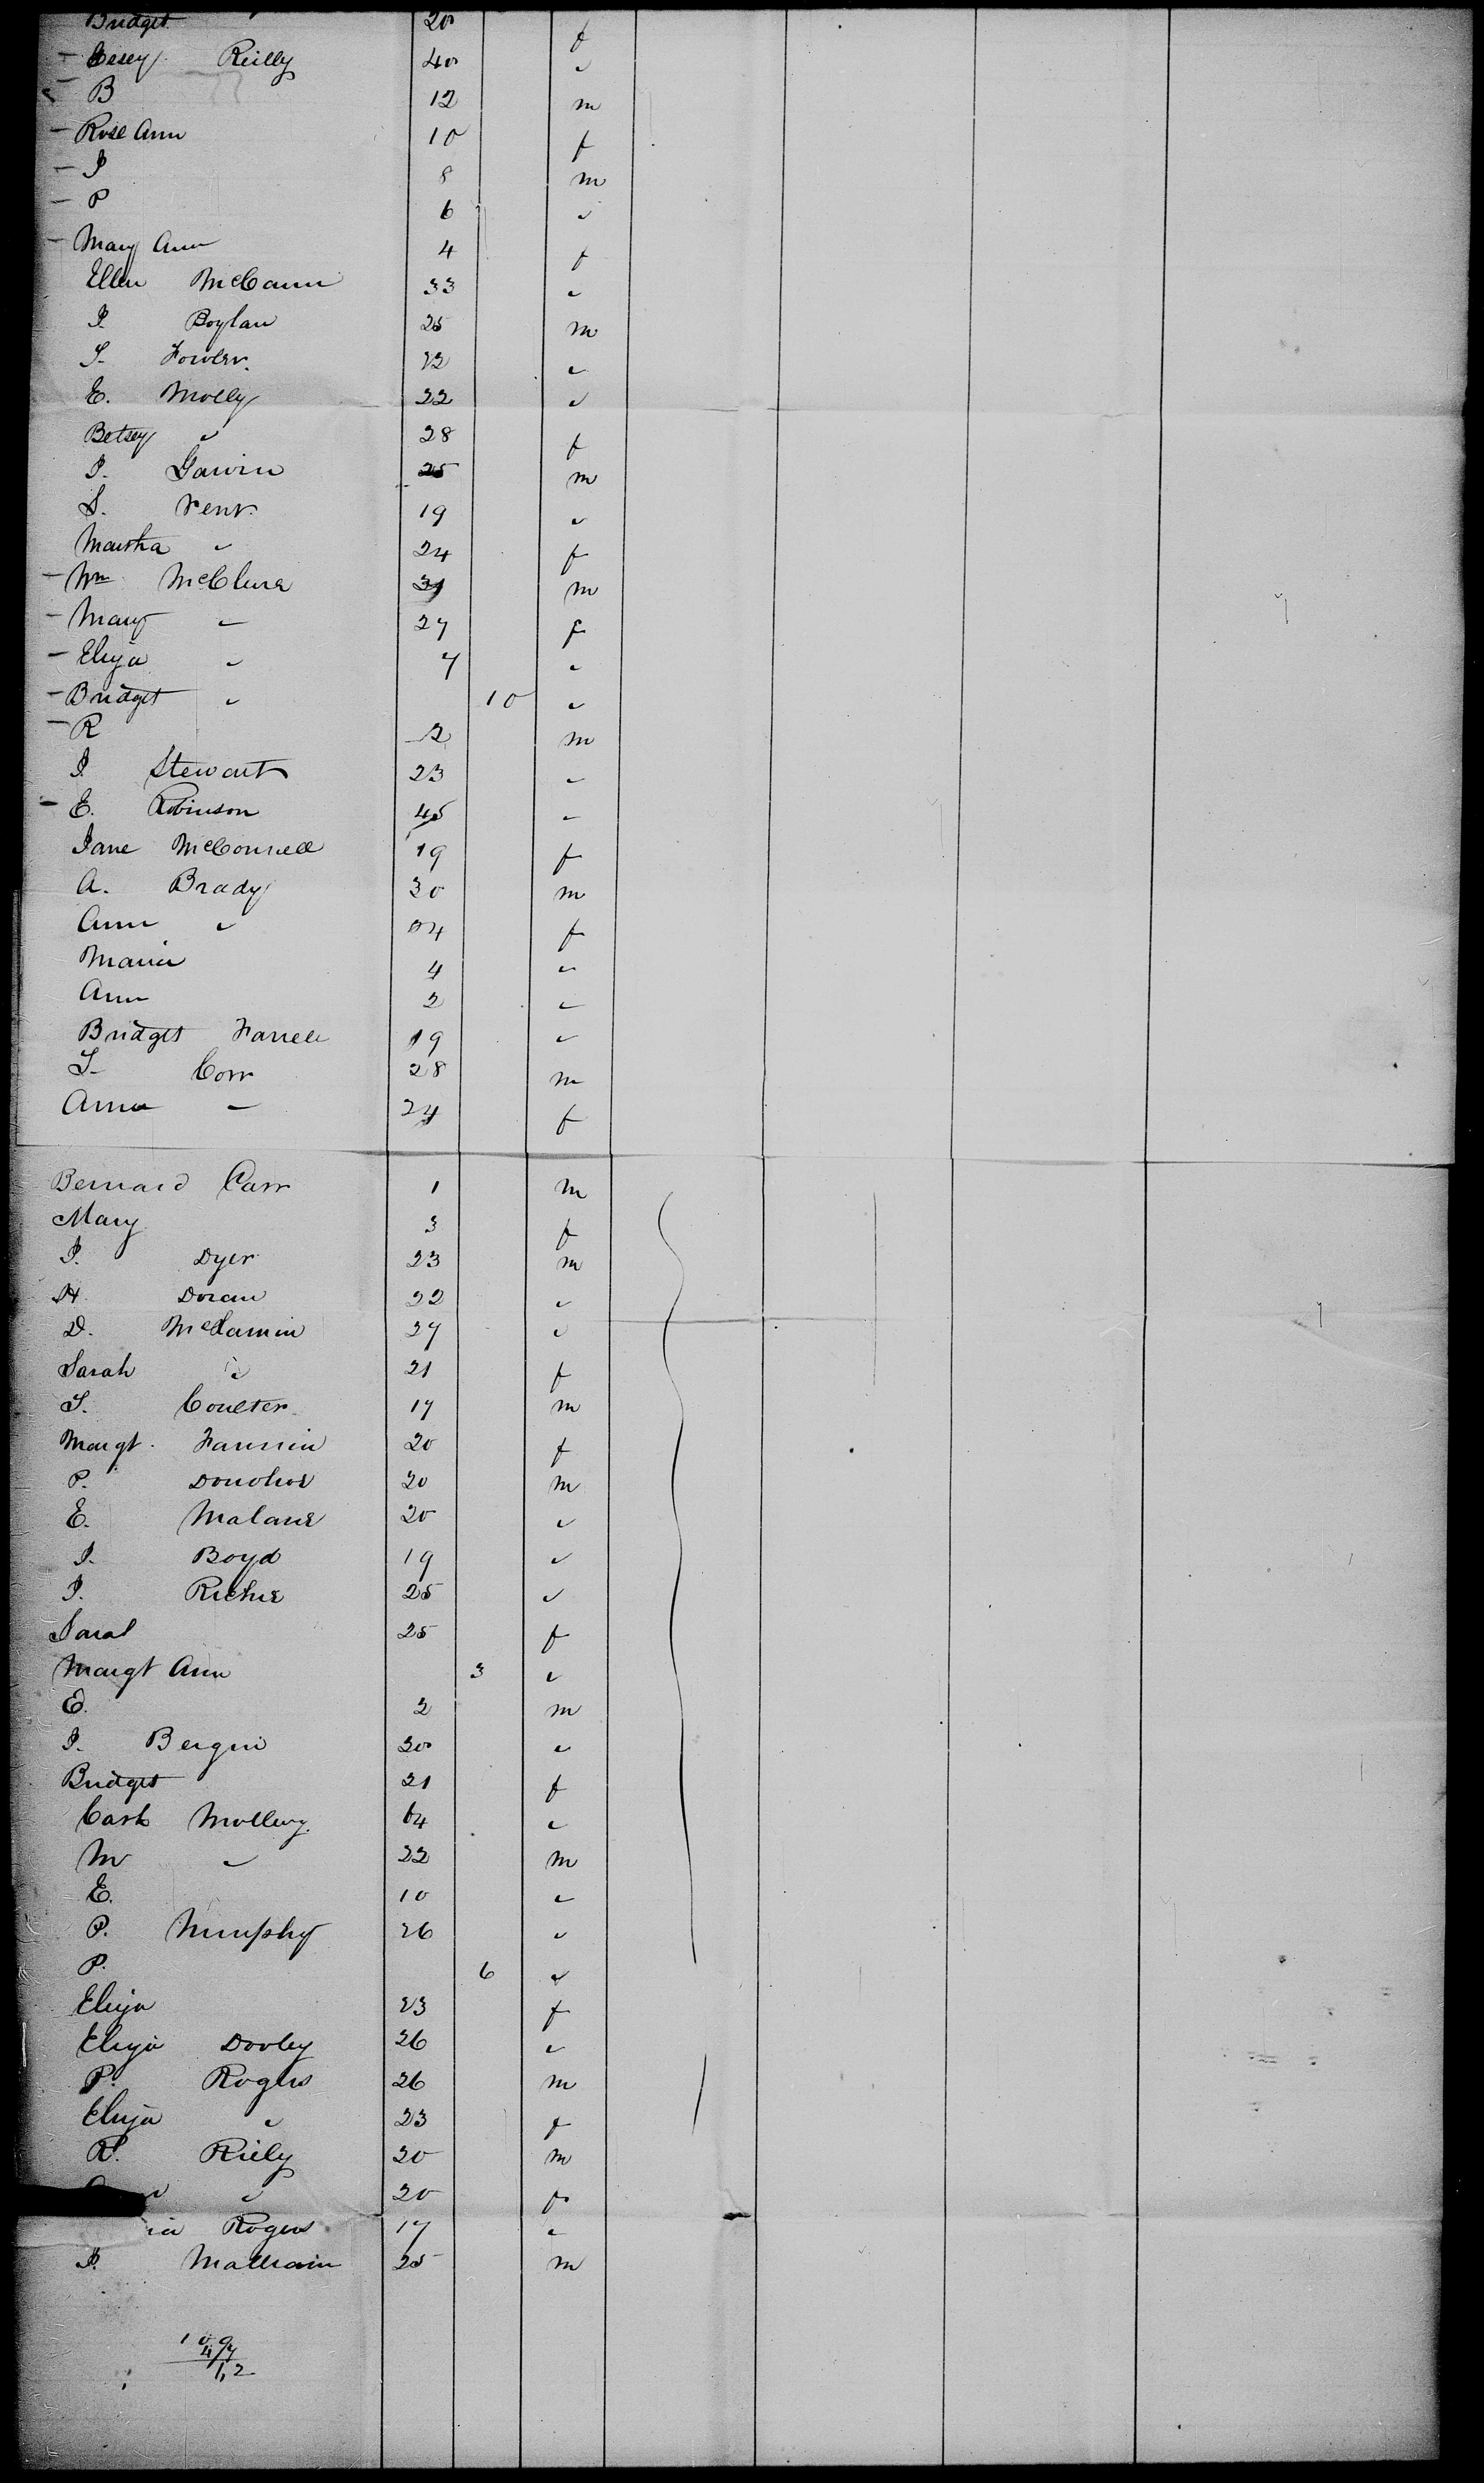 Bridget 20 f
- Casey Reilly 40 "
- B 12 m
- Rose Ann 10 f
- J 8 m
- P 6 "
- Mary Ann 4 f
Ellen McCann 33 "
J. Boylan 25 m
T. Fowler. 22 "
E. Molly 22 "
Betsey " 28 f
J. Garvin 25 m
S. 19 "
Martha " 24 f
- Wm McClure 31 m
- Mary " 27 f
- Eliza " 7 "
- Bridget " 10 "
- R 2 m
J. Stewart 23 "
- E. Robinson 45 "
Jane McConnell 19 f
A. Brady 30 m
Ann " 24 f
Maria 4 "
Ann 2 "
Bridget Farrell 19 "
T. Corr 28 m
Anna " 24 f
Bernard Carr 1 m
Mary 3 f
J. Dyer 23 m
H. Doran 22 "
D. 27 "
Sarah " 21 f
T. Coulter 17 m
Margt. Fannin 20 f
P. Donohoe 20 m
E. Malone 20 "
J. Boyd 19 "
J. Richie 25 "
Sarah 25 f
Margt Ann 3 "
E. 2 m
J. Bergin 30 "
Bridget 21 f
Cath 64 "
M " 22 m
E. 10 "
P. Murphy 26 "
P. 6 "
Eliza 23 f
Eliza Dooley 26 "
P. Rogers 26 m
Eliza " 23 f
P. Riely 20 m
" 20 f
Rogers 17 "
J. 25 m